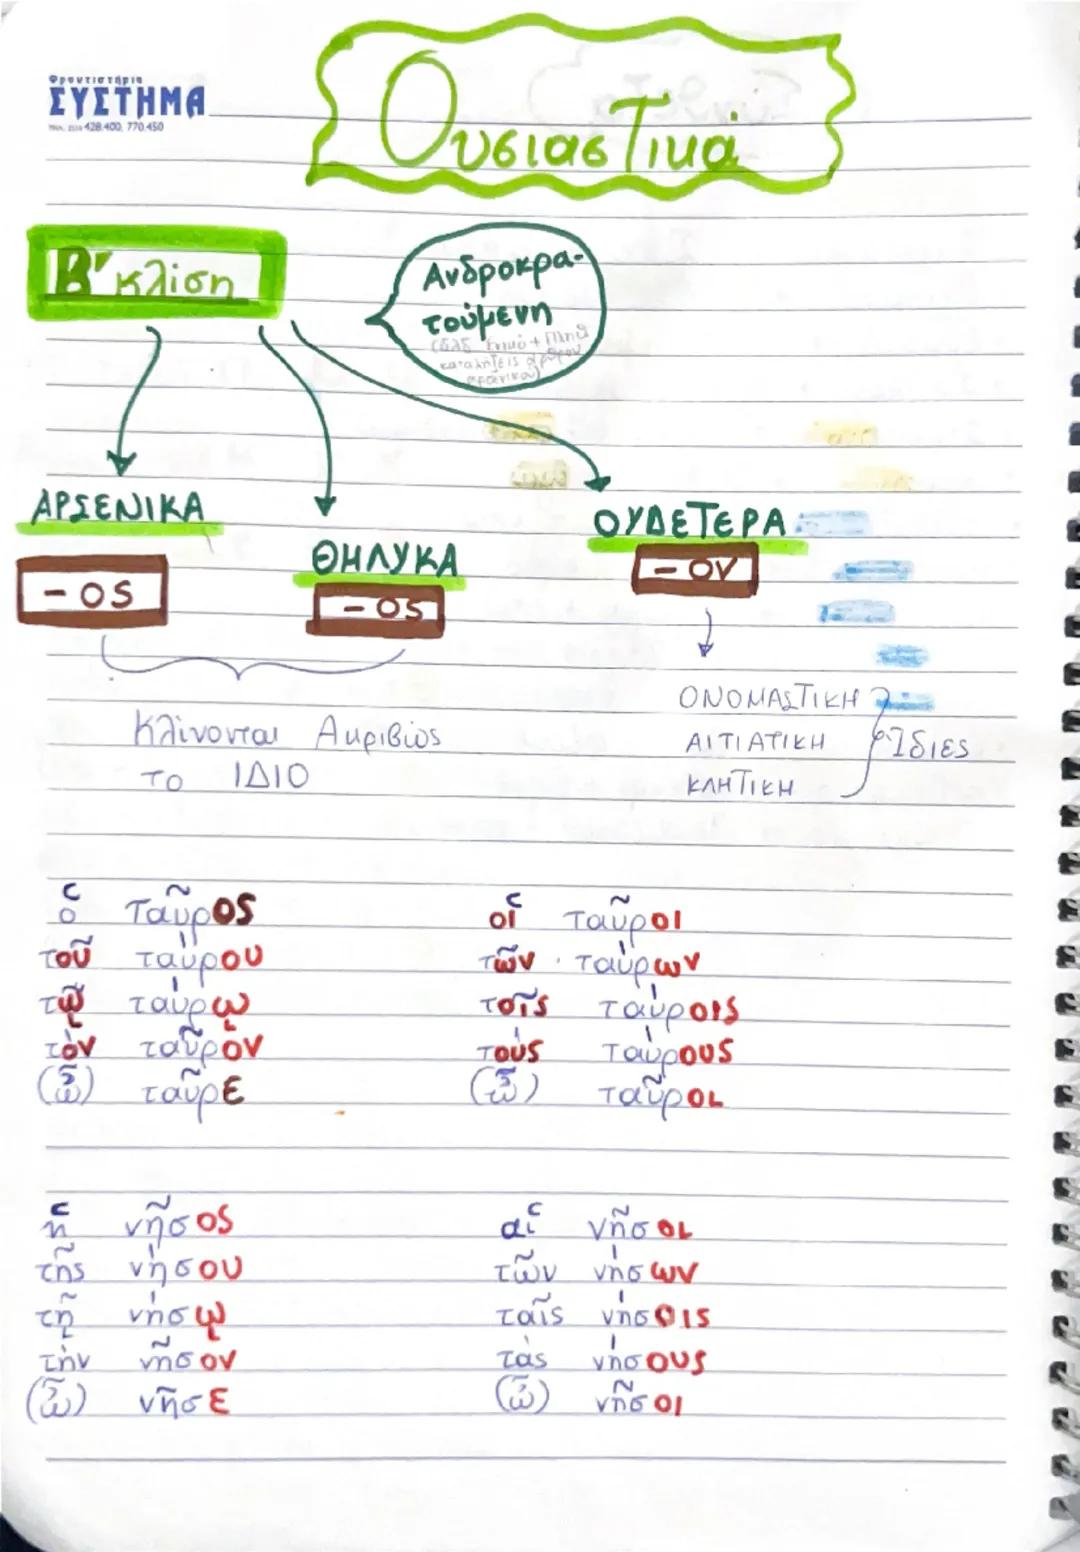 Φροντιστήρια
ΣΥΣΤΗΜΑ
ΤΗΛ. 2310 428.400, 770.450
Ουσιαστικά
Β' κλίση
Ανδροκρα-
τούμενη
(δλδ Ενικό + Πληθ
καταλήξεις άρθρου
αρσενικού)
ΑΡΣΕΝΙΚΑ
-ος
ΘΗΛΥΚΑ
-ος
ΟΥΔΕΤΕΡΑ
-ον
Κλίνονται Ακριβώς
το ΙΔΙΟ
ΟΝΟΜΑΣΤΙΚΗ
ΑΙΤΙΑΤΙΚΗ
ΚΛΗΤΙΚΗ
Ίδιες
ὁ ταῦρος
τοῦ ταύρου
τῷ ταύρῳ
τὸν ταῦρὸν
(ὦ) ταῦρε
οἱ ταῦροι
τῶν ταύρων
τοῖς ταύροις
τοὺς ταύρους
(ὦ) ταῦροι
ἡ νῆσος
τῆς νήσου
τῇ νήσῳ
τὴν νῆσον
(ὦ) νῆσε
αἱ νῆσοι
τῶν νήσων
ταῖς νήσοις
τὰς νήσους
(ὦ) νῆσοι